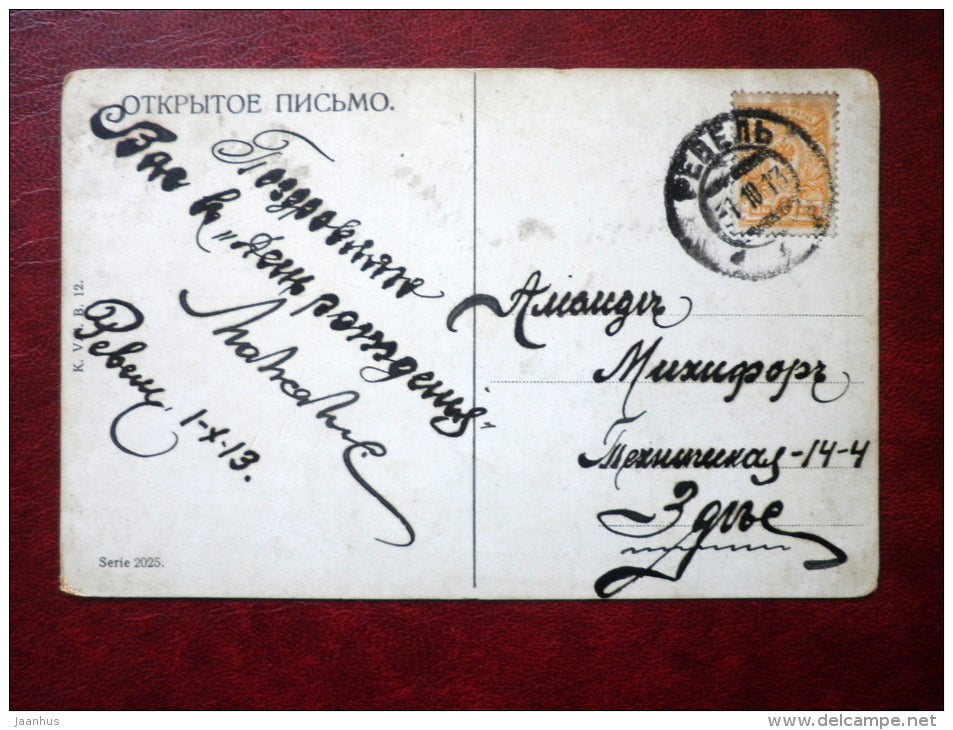 ОТКРЫТОЕ ПИСЬМО.
Поздравляю
Вас въ „День рожденія“
Ревель, 1-X-13.
K. V. B. 12.
Serie 2025.
РЕВЕЛЬ
1 10 13
Аманди
Михифоръ
Техническая-14-4
Здѣсь
Jaanhus
www.delcampe.net